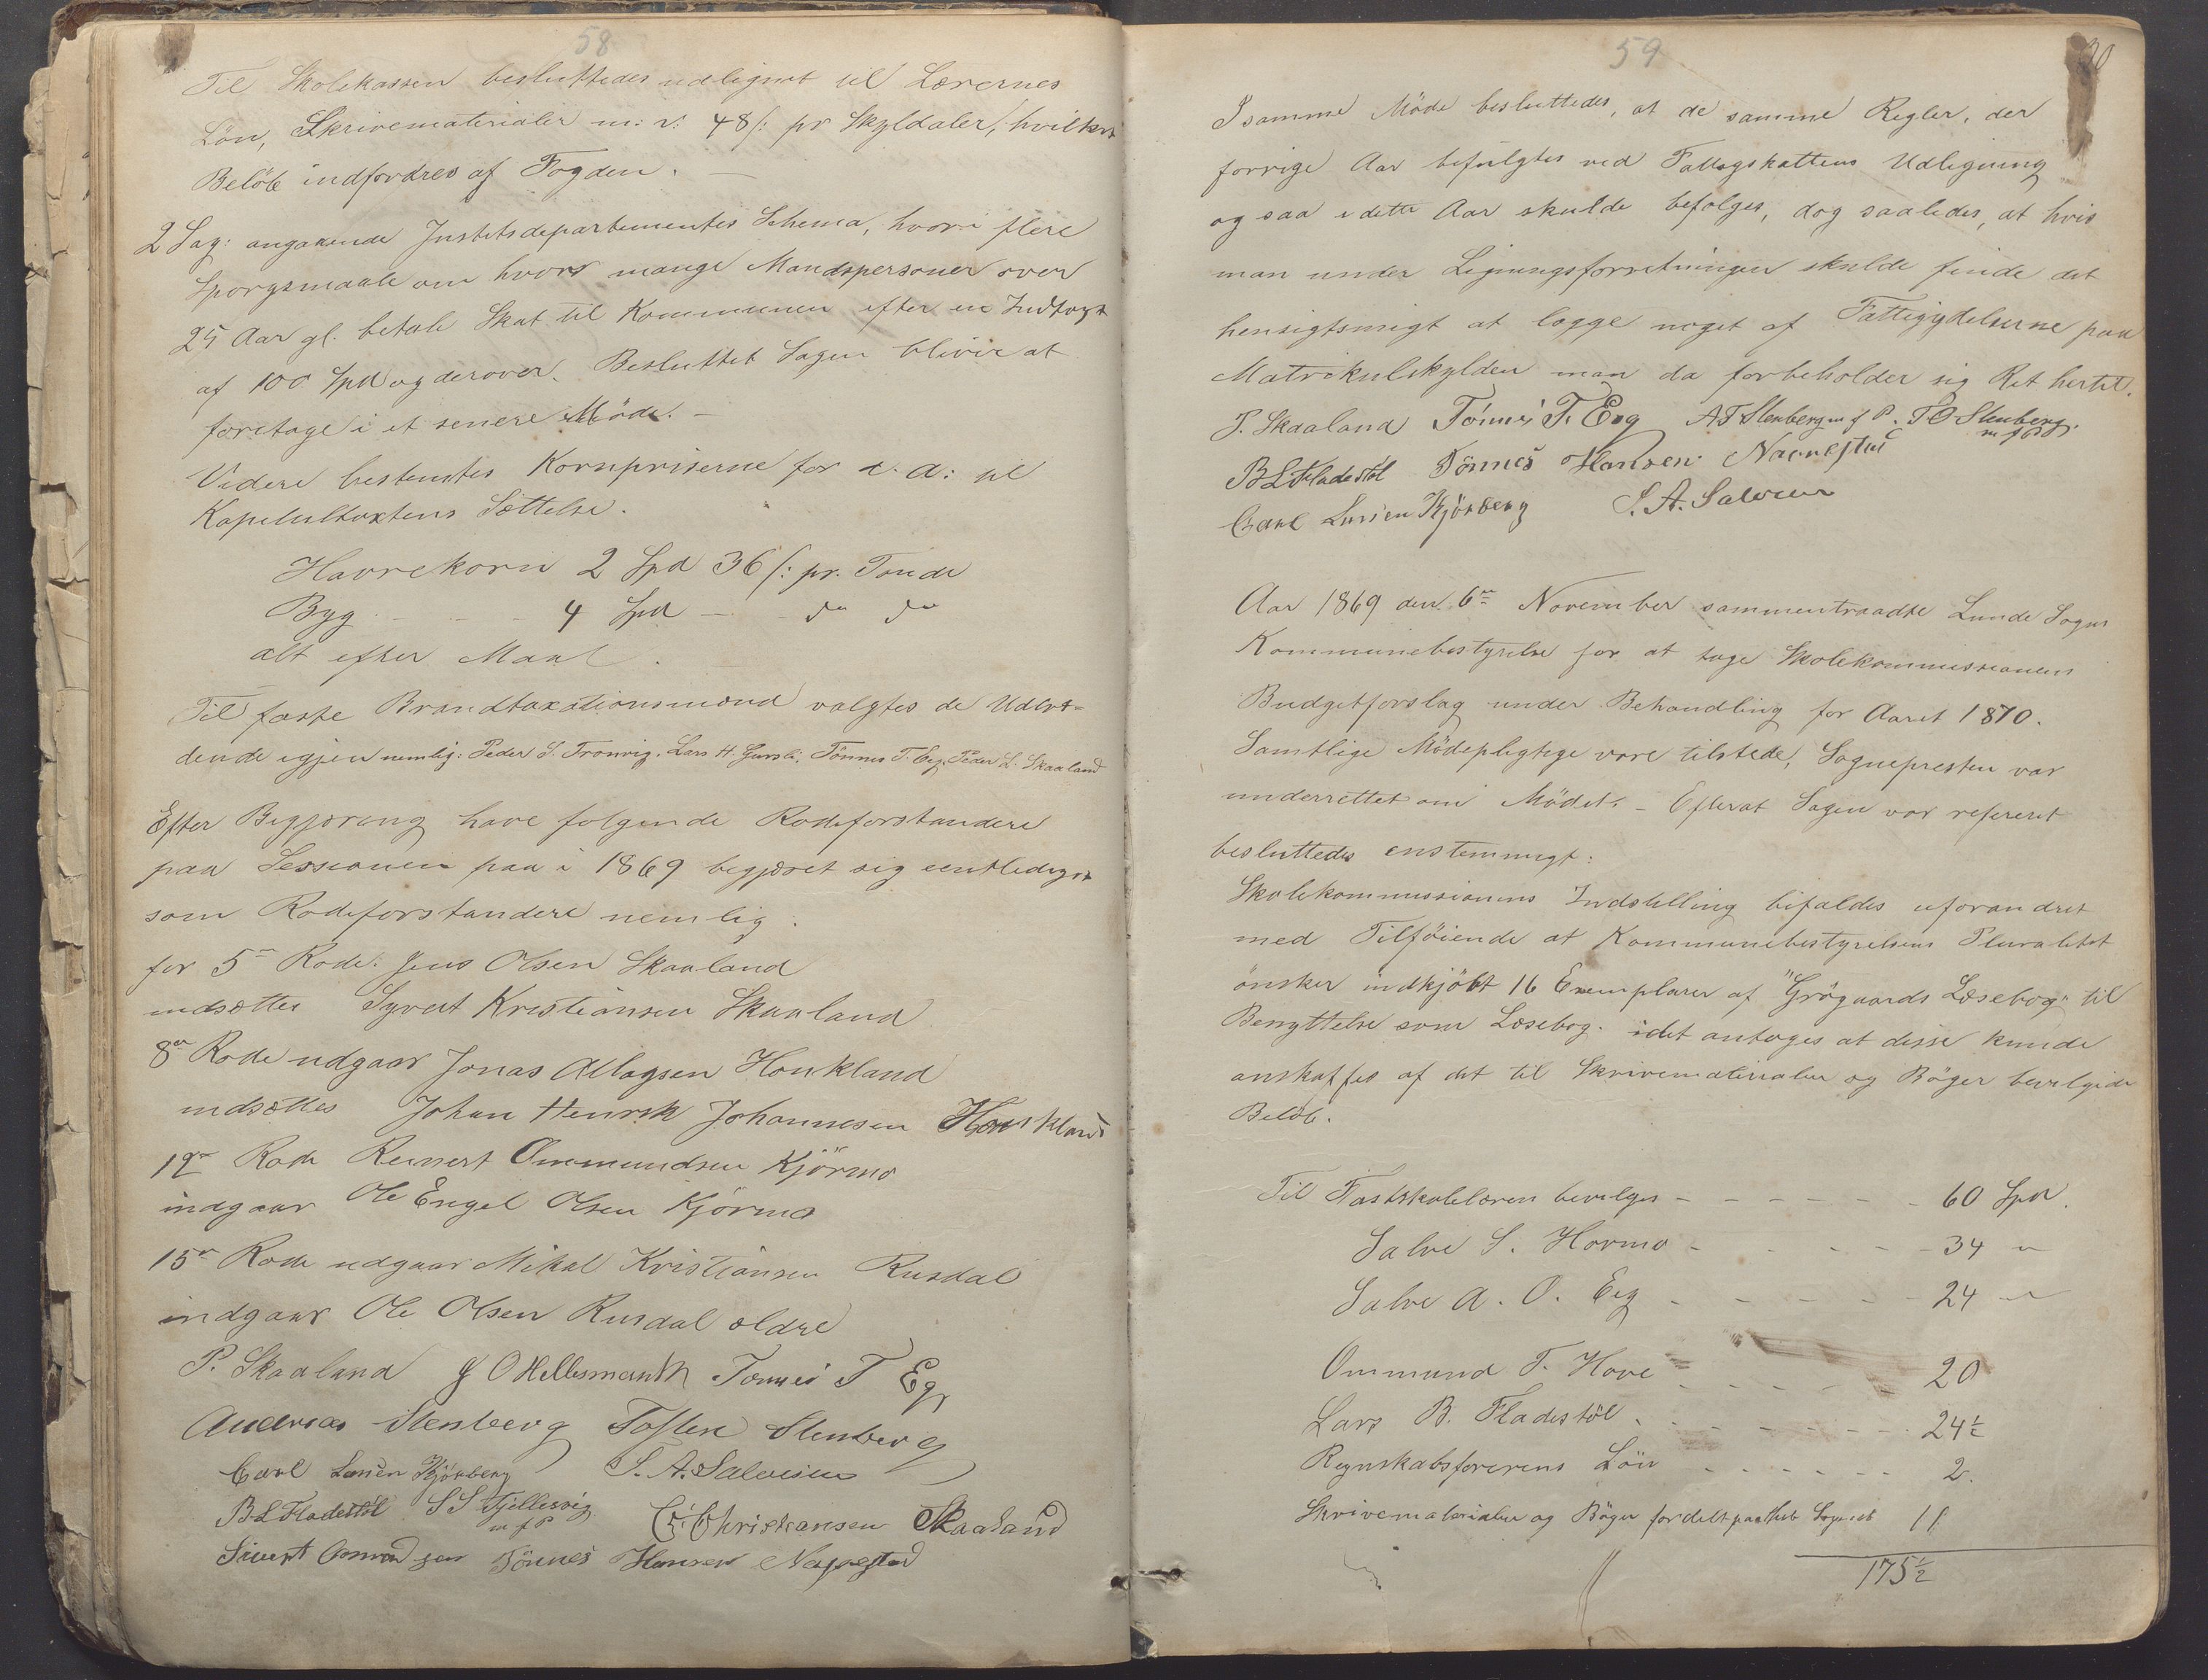 58
Til Skolekassen besluttedes udlignet til Lærernes
Lön, Skrivematerialer m: v: 48 s: pr Skyldaler, hvilket
Belöb indfordres af Fogden. —
2 Sag: angaaende Justitsdepartementes Schema, hvori flere
Sporgsmaale om hvor mange Mandspersoner over
25 Aar gl. betale Skat til Kommunen efter en Indtægt
af 100 Spd og derover. Besluttet Sagen bliver at
foretage i et senere Möde. —
Videre bestemtes Kornpriserne for d. A: til
Kapitultaxtens Sættelse.
Havrekorn 2 Spd 36 s: pr. Tonde
Byg - - - 4 Spd — - do do
alt efter Maal.
Til faste Brandtaxationsmænd valgtes de Udtræ-
dende igjen nemlig: Peder S. Tronvig, Lars H. Gursli, Tönnes T. Eeg, Peder L. Skaaland
Efter Begjæring have folgende Rodeforstandere
paa Sessionen paa i 1869 begjæret sig entlediget
som Rodeforstandere nemlig.
for 5te Rode: Jens Olsen Skaaland
indsættes Syvert Kristiansen Skaaland
8de Rode udgaar Jonas Atlagsen Haukland
indsættes Johan Henrik Johannesen Haukland
12te Rode Reinert Ommundsen Kjörmo
indgaar Ole Engel Olsen Kjörmo
15de Rode udgaar Mikal Kristiansen Rusdal
indgaar Ole Olsen Rusdal ældre
P. Skaaland J O Hellesmark Tönnes T Eeg
Andreas Stenberg Tosten Stenberg
Carl Larsen Kjörberg S. A. Salvesen
B L Fladstöl S S Fjellesvig
m f P
C. Christiansen Skaaland
Sivert Tönnes Hansen Nagrestad
59
30
I samme Möde besluttedes, at de samme Regler, der
forrige Aar befulgtes ved Fattigskattens Udligning
og saa i dette Aar skulde befolges, dog saaledes, at hvis
man under Ligningsforretningen skulde finde det
hensigtsmæsigt at lægge noget af Fattigydelserne paa
Matrikulskylden man da forbeholder sig Ret hertil.
P. Skaaland Tönnes T. Eeg A T Stenberg m f P. T O Stenberg
m f P
B L Fladstöl Tönnes Hansen Nagrestad
Carl Larsen Kjörberg S. A. Salvesen
Aar 1869 den 6te November sammentraadte Lunde Sogns
Kommunebestyrelse for at tage Skolekommissionens
Budgetforslag under Behandling for Aaret 1870.
Samtlige Mödepligtige vare tilstede, Sognepresten var
underrettet om Mödet. — Efterat Sagen var refereret
besluttedes enstemmigt:
Skolekommissionens Indstilling bifaldes uforandret
med Tilföiende at Kommunebestyrelsens Pluralitet
önsker indkjöbt 16 Exemplarer af "Grögaards Læsebog" til
Benyttelse som Læsebog. idet antages at disse kunde
anskaffes af det til Skrivematerialer og Böger bevilgede
Belöb.
Til Fastskolelæreren bevilges - - - - - 60 Spd.
Salve S. Hovmo - - - - 34 "
Salve A. O. Eeg - - - - - 24 "
Ommund T. Hove - - - - 20
Lars B. Fladstöl - - - - - 24½
Regnskabsförerens Lön - - - - - - 2.
Skrivematerialier og Böger fordelt paa hele Sognet 11
175½